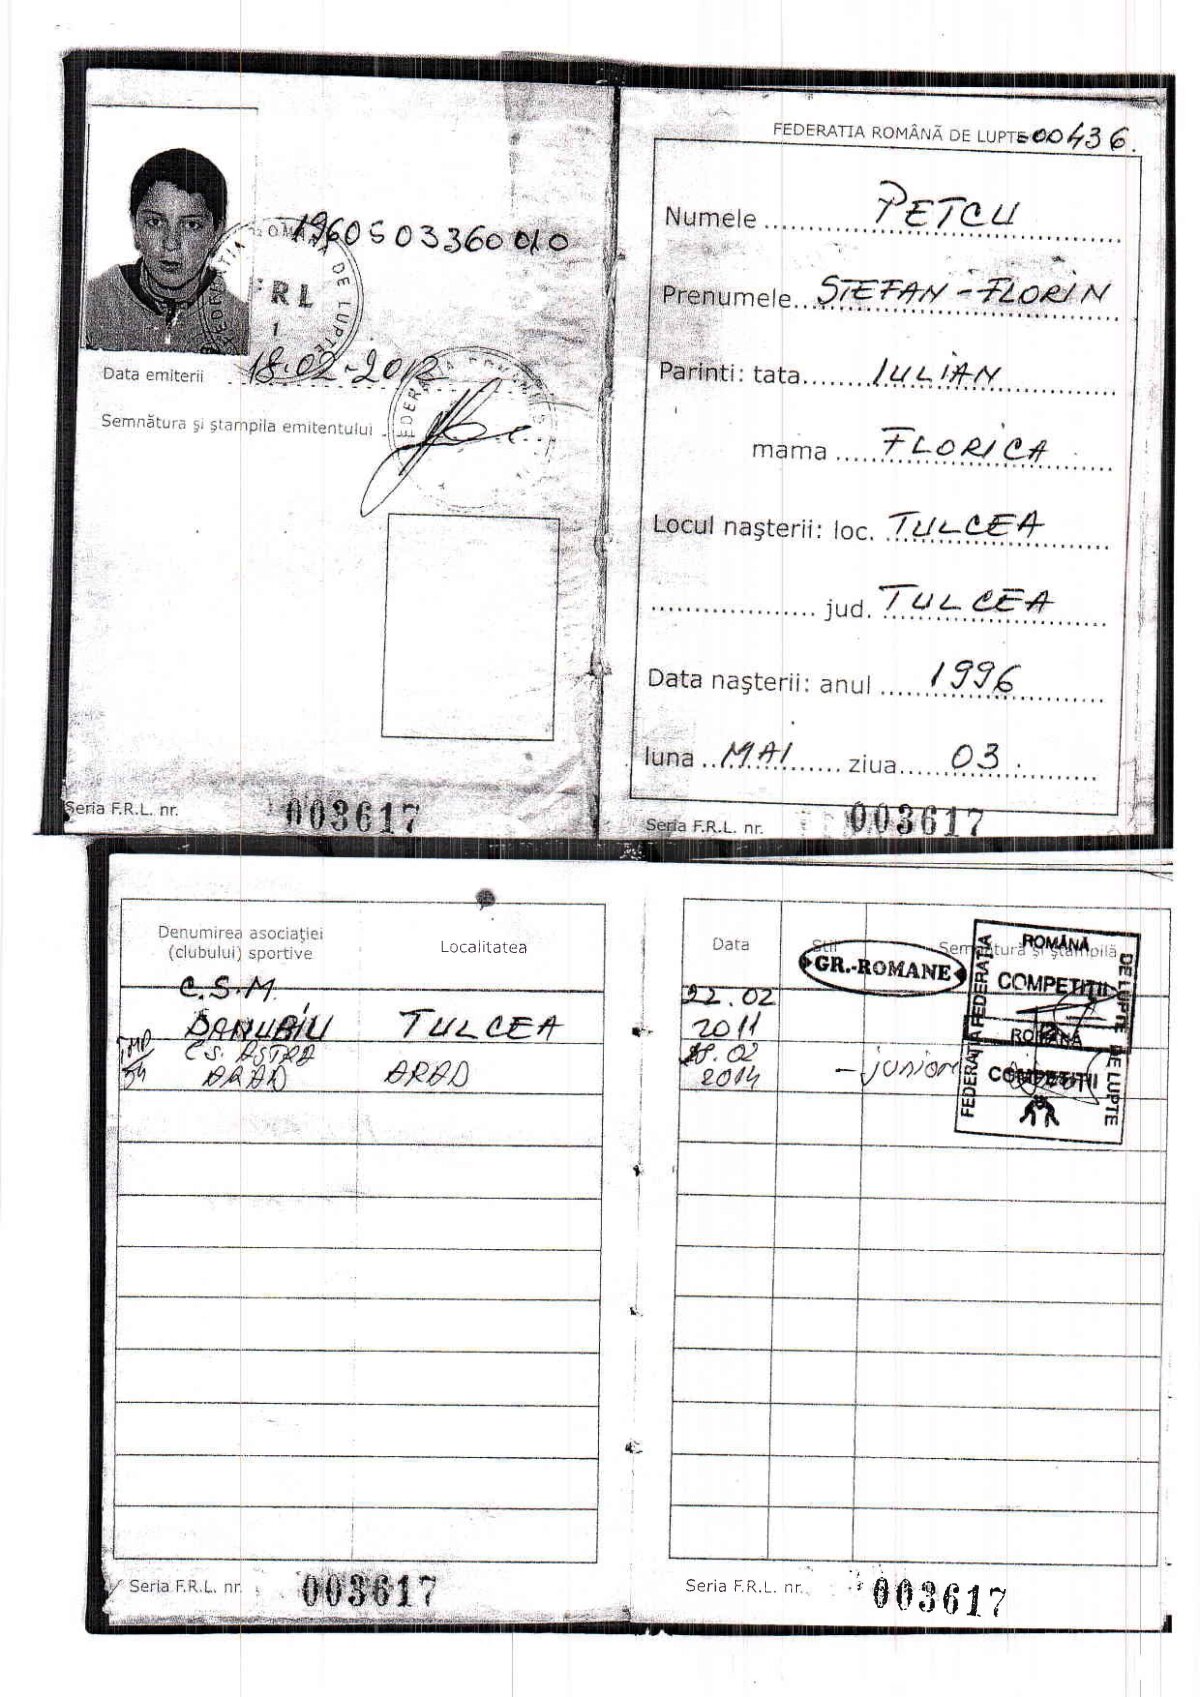 1960503360010
FEDERAȚIA ROMÂNĂ DE LUPTE
FRL
1
Data emiterii 18.02-2012
Semnătura şi ştampila emitentului
Seria F.R.L. nr. 003617
FEDERATIA ROMÂNĂ DE LUPTE 00436.
Numele PETCU
Prenumele STEFAN-FLORIN
Parinti: tata IULIAN
mama FLORICA
Locul naşterii: loc. TULCEA
jud. TULCEA
Data naşterii: anul 1996
luna MAI ziua 03
Seria F.R.L. nr. 003617
Denumirea asociaţiei
(clubului) sportive
Localitatea
C.S.M.
DANUBIU TULCEA
C.S. ASTRA
ARAD ARAD
Seria F.R.L. nr. 003617
Data Stil Semnătură şi ştampilă
GR.-ROMANE
22.02
2011
28.02
2014 -juniori
FEDERAȚIA ROMÂNĂ DE LUPTE
COMPETIȚII
FEDERAȚIA ROMÂNĂ DE LUPTE
COMPETIȚII
Seria F.R.L. nr. 003617